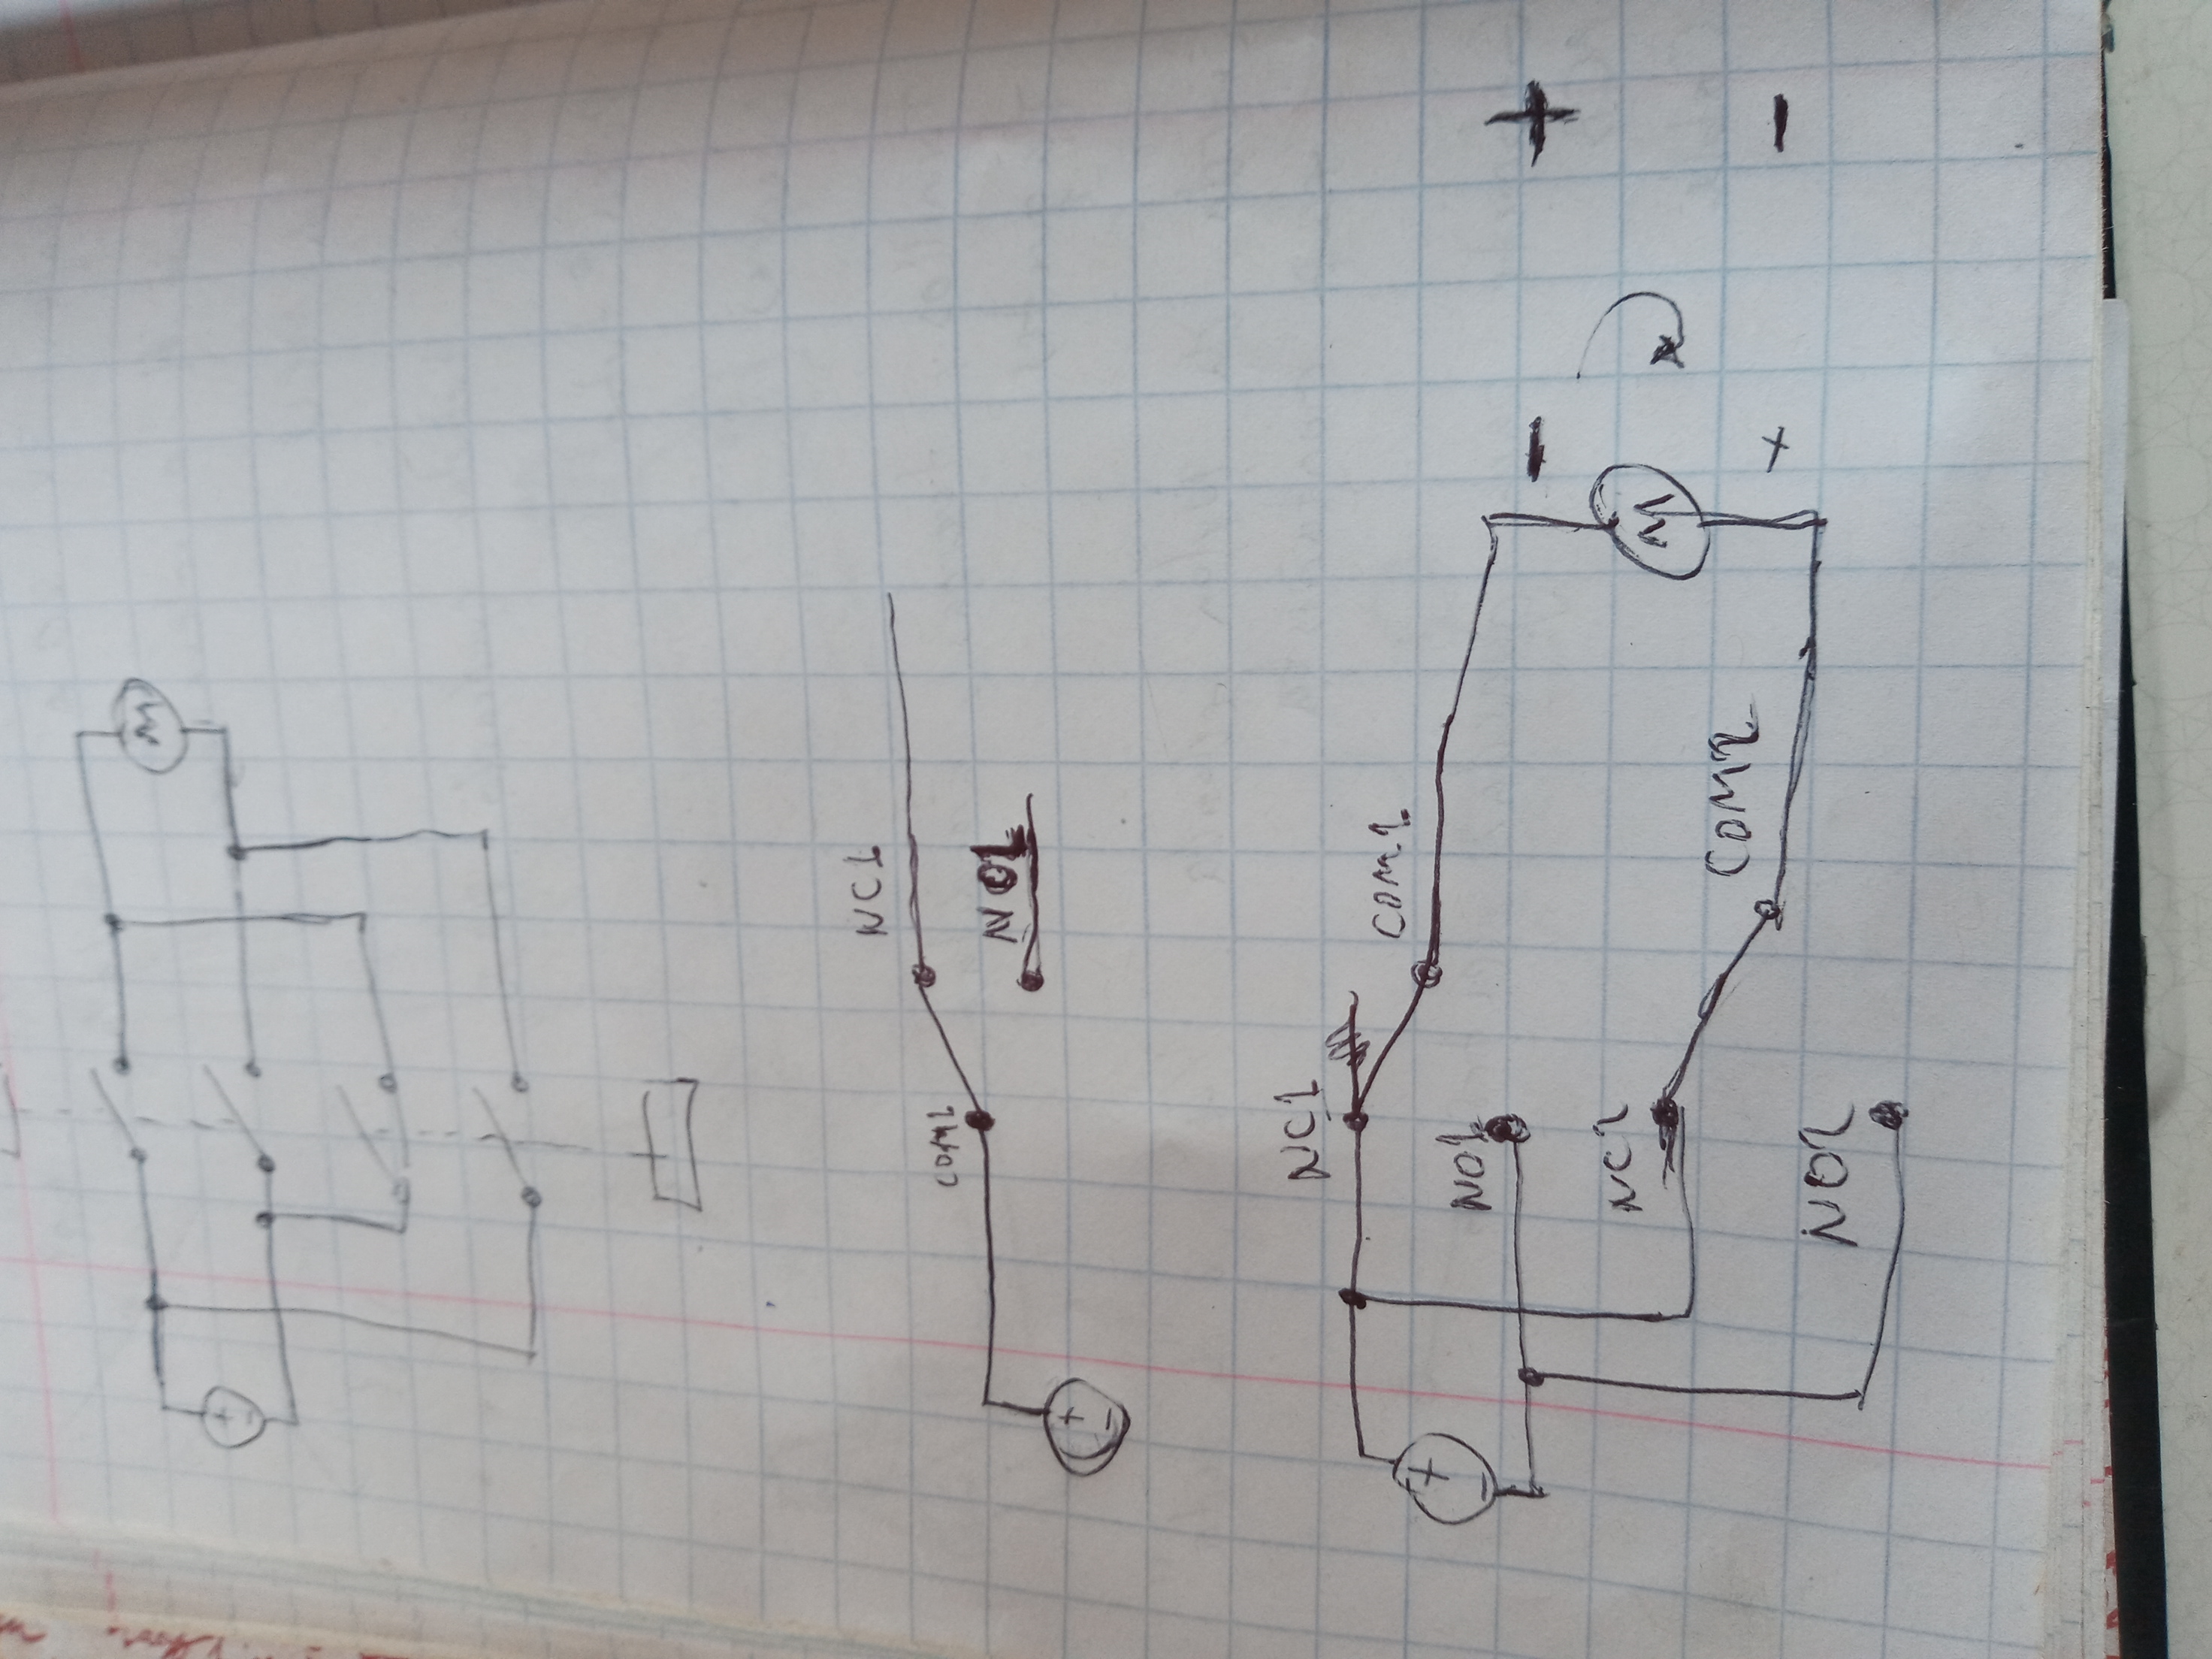 +
-
M
NC1
COM1
NO1
+
-
NC1
COM1
+
-
NO1
- +
NC2
M
COM2
+ -
NO2